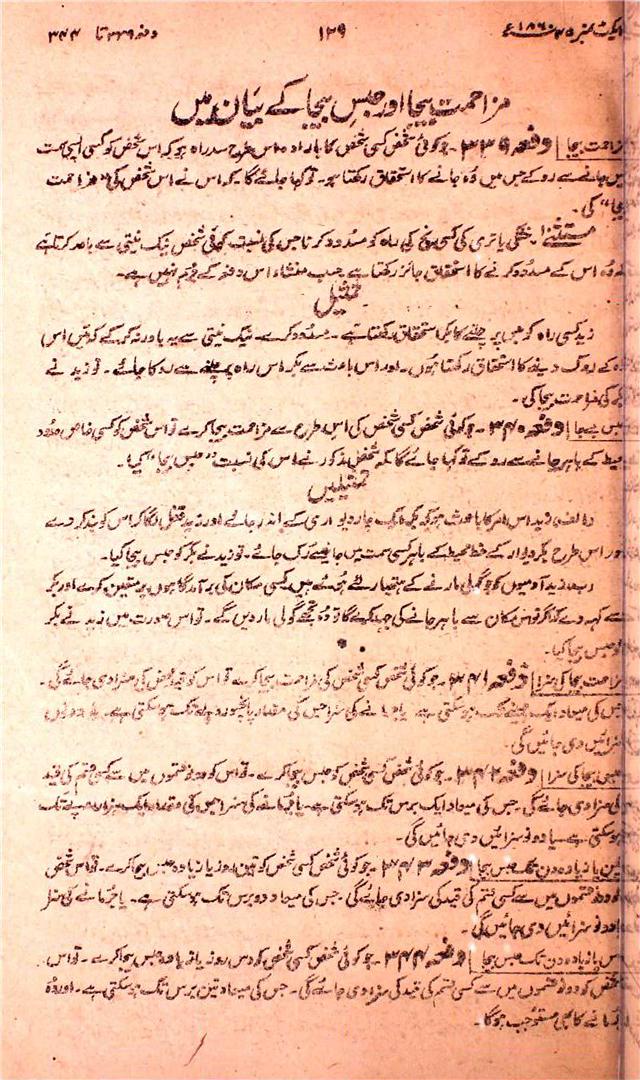 ایکٹ نمبر ۴۵ ۱۸۶۰ء ۱۳۹ دفعہ ۳۳۹ تا ۳۴۴
مزاحمت بیجا اور حبس بیجا کے بیان میں
مزاحمت بیجا دفعہ ۳۳۹ ۔ جو کوئی شخص کسی شخص کا بارادہ اس طرح سدراہ ہو کہ اس شخص کو کسی ایسی سمت
میں جانے سے روکے جس میں وہ جانے کا استحقاق رکھتا ہو۔ تو کہا جائے گا کہ اس نے اس شخص کی "مزاحمت
بیجا" کی۔
مستثنیٰ۔ خشکی یا تری کی کسی نج کی راہ کو مسدود کرنا جس کی نسبت کوئی شخص نیک نیتی سے باور کرتا ہے
کہ وہ اس کے مسدود کرنے کا استحقاق جائز رکھتا ہے حسب منشاء اس دفعہ کے جرم نہیں ہے۔
تمثیل
زید کسی راہ کو جس پر چلنے کا بکر استحقاق رکھتا ہے۔ مسدود کرے۔ نیک نیتی سے یہ باور نہ کر کے کہ میں اس
راہ کے روک دینے کا استحقاق رکھتا ہوں۔ اور اس باعث سے بکر اس راہ پر چلنے سے روکا جائے۔ تو زید نے
بکر کی مزاحمت بیجا کی۔
حبس بے جا دفعہ ۳۴۰ ۔ جو کوئی شخص کسی شخص کی اس طرح سے مزاحمت بیجا کرے تو اس شخص کو کسی خاص حدود
محیط کے باہر جانے سے روکے تو کہا جائے گا کہ شخص مذکور نے اس کی نسبت "حبس بیجا" کیا۔
تمثیلیں
(الف) زید اس امر کا باعث ہو کہ بکر ایک چار دیواری کے اندر جائے اور زید قفل لگا کر اس کو بند کر دے
اور اس طرح بکر دیوار کے خط محیط کے باہر کسی سمت میں جانے سے رک جائے۔ تو زید نے بکر کو حبس بیجا کیا۔
(ب) زید آدمیوں کو جو گولی مارنے کے ہتھیار لئے ہوئے ہیں کسی مکان کی برآمدگاہوں پر متعین کرے اور بکر
سے کہہ دے کہ اگر تو اس مکان سے باہر جانے کی جہد کرے گا تو وہ تجھے گولی مار دیں گے۔ تو اس صورت میں زید نے بکر
کو حبس بیجا کیا۔
مزاحمت بیجا کی سزا دفعہ ۳۴۱ ۔ جو کوئی شخص کسی شخص کی مزاحمت بیجا کرے تو اس کو قید محض کی سزا دی جائے گی۔
جس کی میعاد ایک مہینے تک ہو سکتی ہے یا جرمانے کی سزا جس کی مقدار پانچسو روپے تک ہو سکتی ہے۔ یا دونوں
سزائیں دی جائیں گی۔
حبس بیجا کی سزا دفعہ ۳۴۲ ۔ جو کوئی شخص کسی شخص کو حبس بیجا کرے۔ تو اس کو دونوں قسموں میں سے کسی قسم کی قید
کی سزا دی جائے گی۔ جس کی میعاد ایک برس تک ہو سکتی ہے۔ یا جرمانے کی سزا جس کی مقدار ایک ہزار روپے تک
ہو سکتی ہے۔ یا دونوں سزائیں دی جائیں گی۔
تین یا زیادہ دن تک حبس بیجا دفعہ ۳۴۳ ۔ جو کوئی شخص کسی شخص کو تین روز یا زیادہ حبس بیجا کرے۔ تو اس شخص
کو دونوں قسموں میں سے کسی قسم کی قید کی سزا دی جائے گی۔ جس کی میعاد دو برس تک ہو سکتی ہے۔ یا جرمانے کی سزا
یا دونوں سزائیں دی جائیں گی۔
دس یا زیادہ دن تک حبس بیجا دفعہ ۳۴۴ ۔ جو کوئی شخص کسی شخص کو دس روز یا زیادہ حبس بیجا کرے۔ تو اس
شخص کو دونوں قسموں میں سے کسی قسم کی قید کی سزا دی جائے گی۔ جس کی میعاد تین برس تک ہو سکتی ہے۔ اور وہ
جرمانے کا بھی مستوجب ہوگا۔